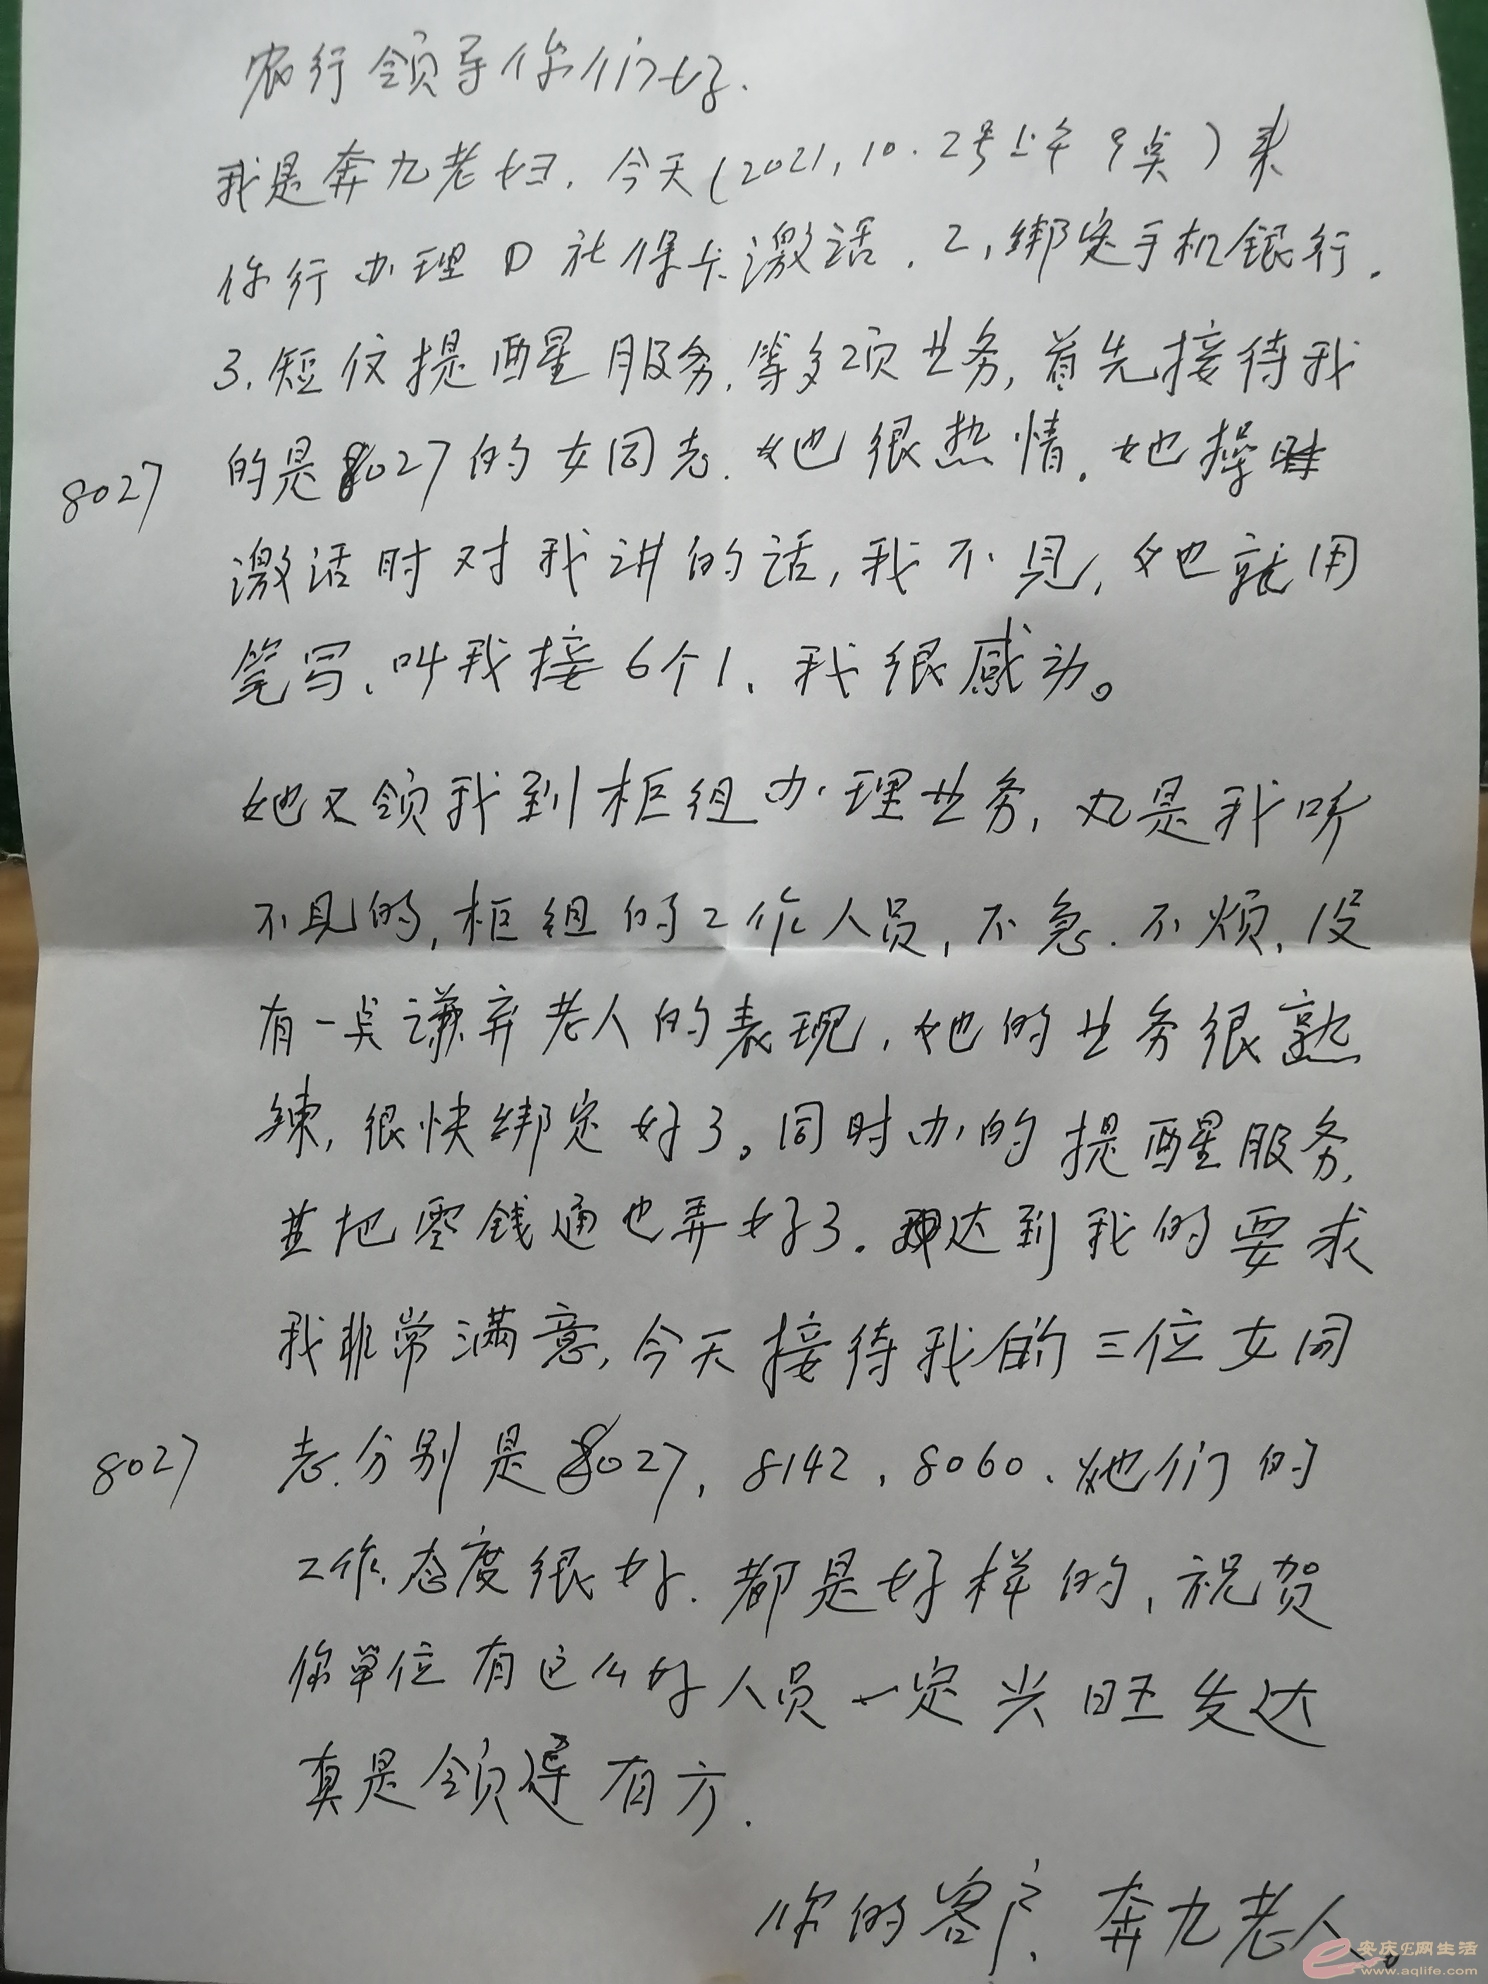 农行领导你们好.
我是奔九老妇.今天(2021,10.2号上午9点)来
你行办理①社保卡激活.2,绑定手机银行.
3.短仪提醒服务.等多项业务,首先接待我
8027 的是8027的女同志.她很热情.她操
激活时对我讲的话,我不见,她就用
笔写、叫我接6个1、我很感动。
她又领我到柜组办理业务,也是我听
不见的,柜组的工作人员,不急.不烦,没
有一点谦弃老人的表现,她的业务很熟
练,很快绑定好了。同时办的提醒服务,
并把零钱通也弄好了.达到我的要求
我非常满意,今天接待我的三位女同
8027 志分别是8027,8142,8060、她们的
工作态度很好.都是好样的,祝贺
你单位有这么好人员一定兴旺发达
真是领导有方.
你的客户、奔九老人。
安庆E网生活
www.aqlife.com